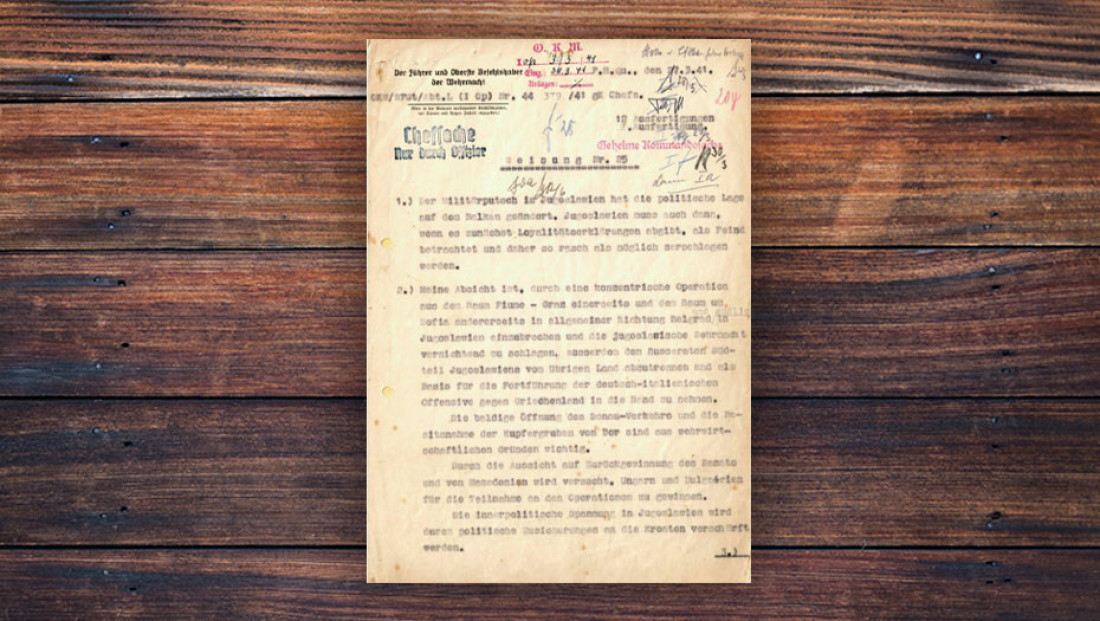 O. K. M.
Der Führer und Oberste Befehlshaber
der Wehrmacht
Eing.
Anlagen:
F.H.Qu., den 27.3.41.
OKW/WFSt/Abt.L (I Op) Nr. 44 379 /41 gK Chefs.
12 Ausfertigungen
2. Ausfertigung
Chefsache
Nur durch Offizier
Geheime Kommandosache
Weisung Nr. 25
1.) Der Militärputsch in Jugoslawien hat die politische Lage
auf dem Balkan geändert. Jugoslawien muss auch dann,
wenn es zunächst Loyalitätserklärungen abgibt, als Feind
betrachtet und daher so rasch als möglich zerschlagen
werden.
2.) Meine Absicht ist, durch eine konzentrische Operation
aus dem Raum Fiume - Graz einerseits und dem Raum um
Sofia andererseits in allgemeiner Richtung Belgrad in
Jugoslawien einzubrechen und die jugoslawische Wehrmacht
vernichtend zu schlagen, ausserdem den äussersten Süd-
teil Jugoslawiens vom übrigen Land abzutrennen und als
Basis für die Fortführung der deutsch-italienischen
Offensive gegen Griechenland in die Hand zu nehmen.
Die baldige Öffnung des Donau-Verkehrs und die Be-
sitznahme der Kupfergruben von Bor sind aus wehrwirt-
schaftlichen Gründen wichtig.
Durch die Aussicht auf Zurückgewinnung des Banats
und von Mazedonien wird versucht, Ungarn und Bulgarien
für die Teilnahme an den Operationen zu gewinnen.
Die innerpolitische Spannung in Jugoslawien wird
durch politische Zusicherungen an die Kroaten verschärft
werden.
3.)